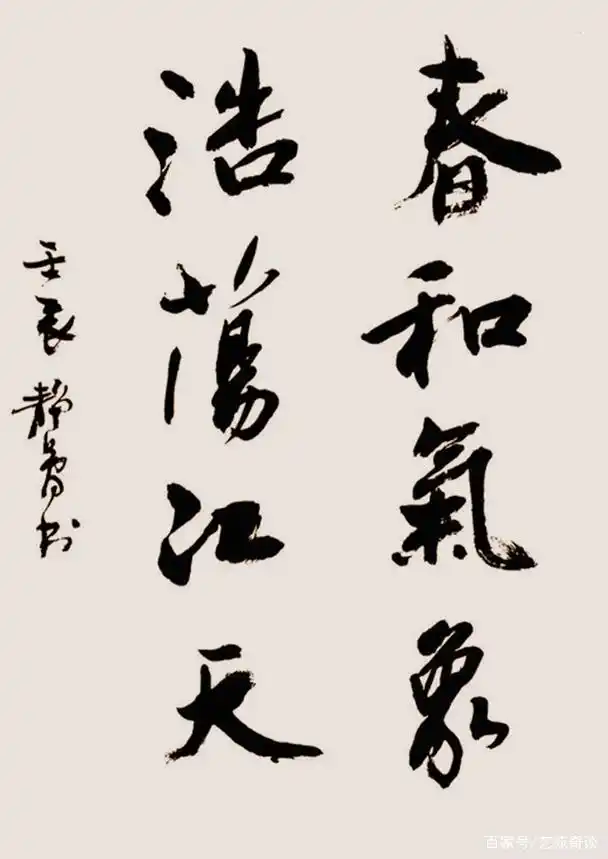 春和氣象
浩蕩江天
壬辰 静魯书
百家号/艺旅奇谈